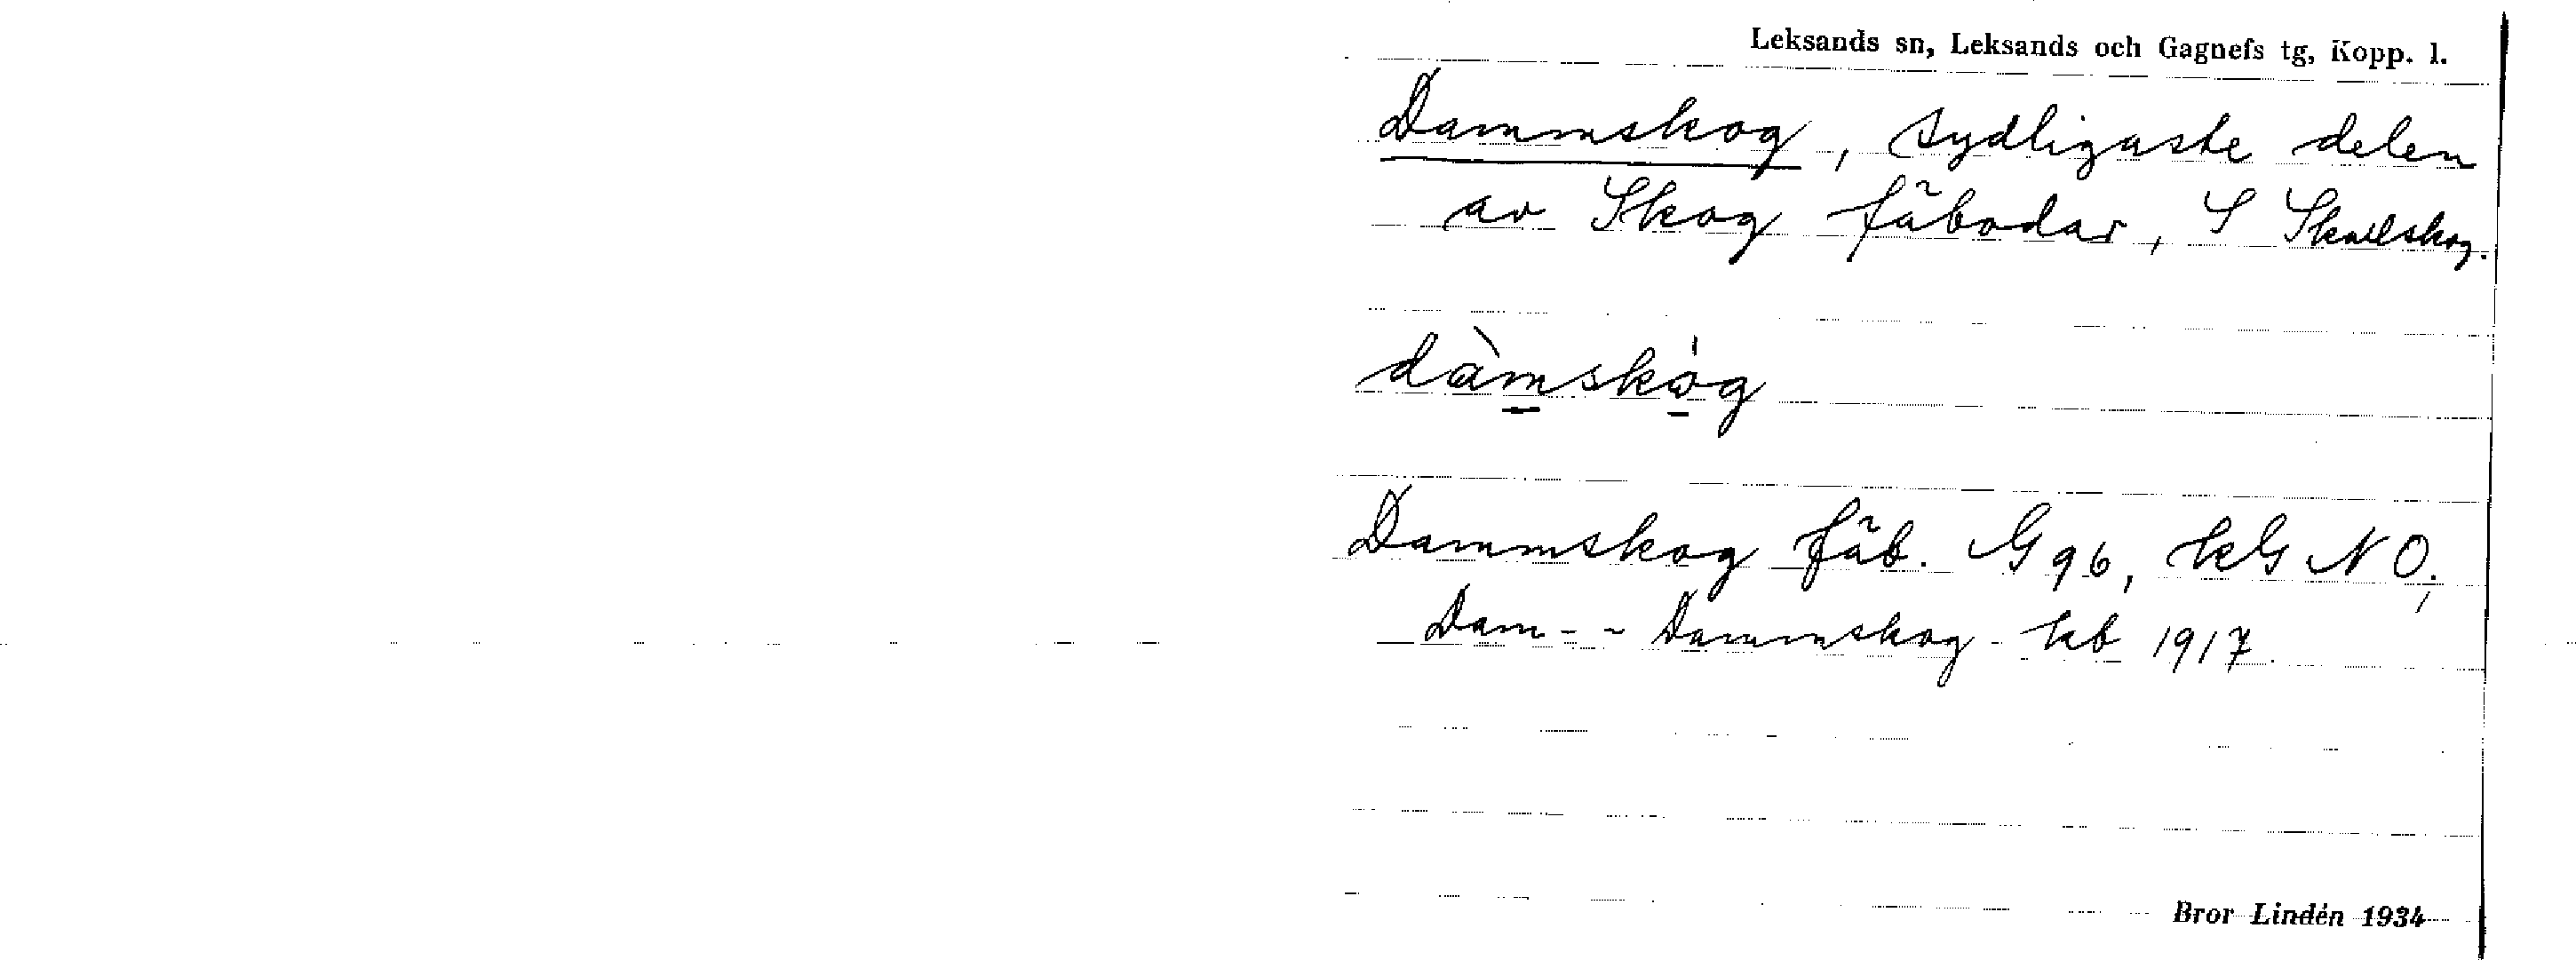 Leksands sn, Leksands och Gagnefs tg, Kopp. l.
Dammskog, sydligaste delen
av Skog fäbodar, S
dàmskòg
Dammskog fäb. G 96, NO;
Dam- - Dammskog - kb 1917.
Bror Lindén 1934